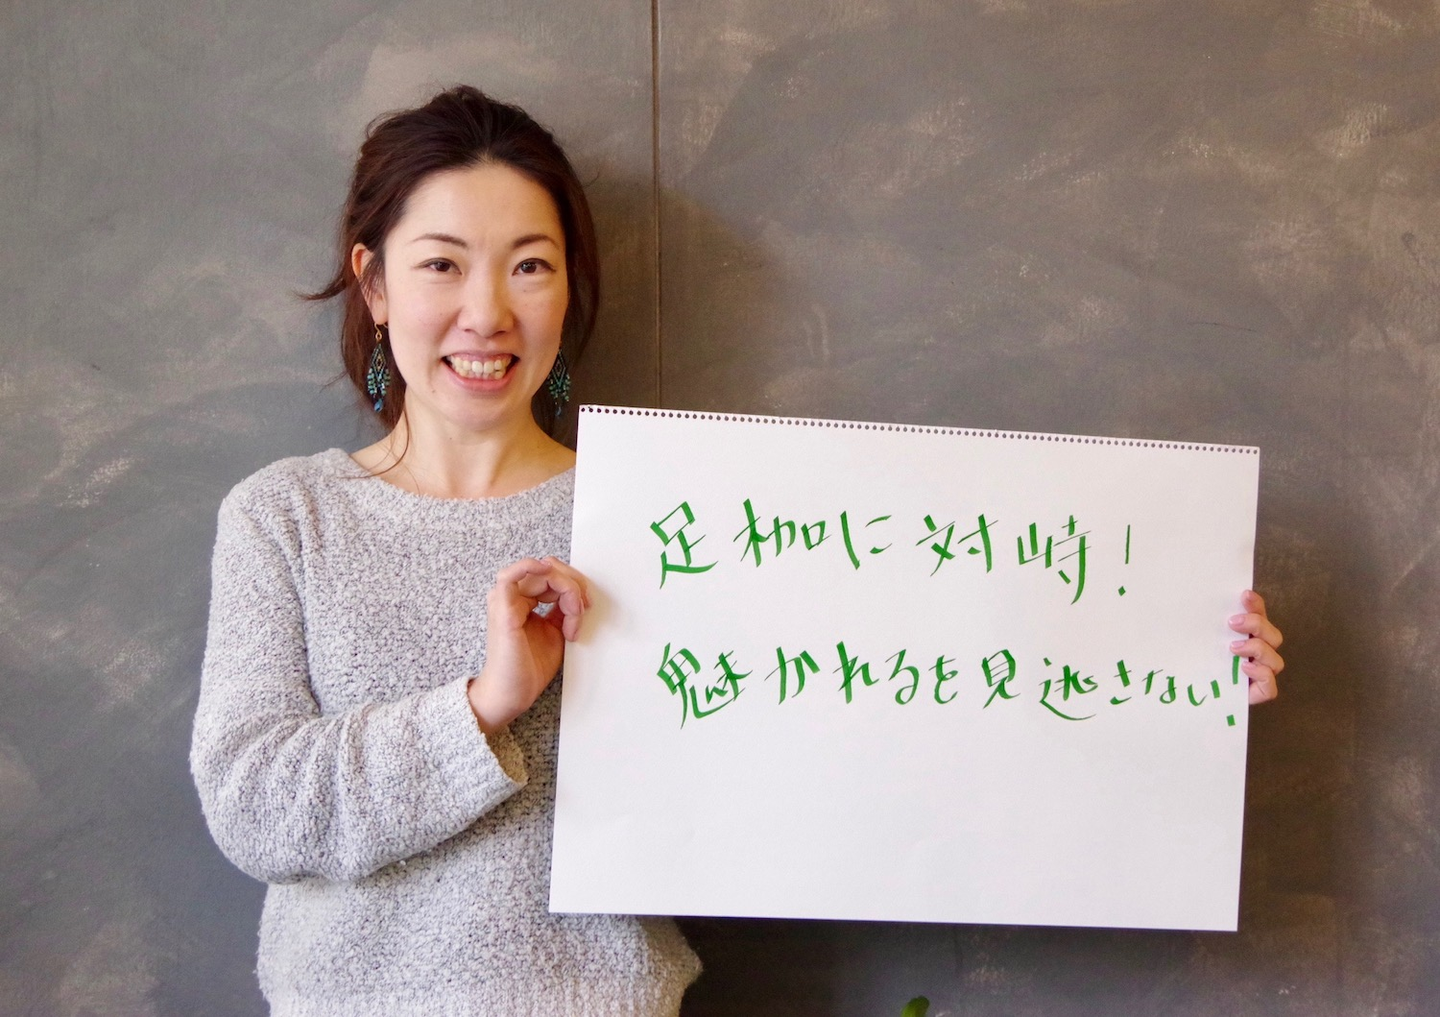 足枷に対峙!
魅かれるを見逃さない!